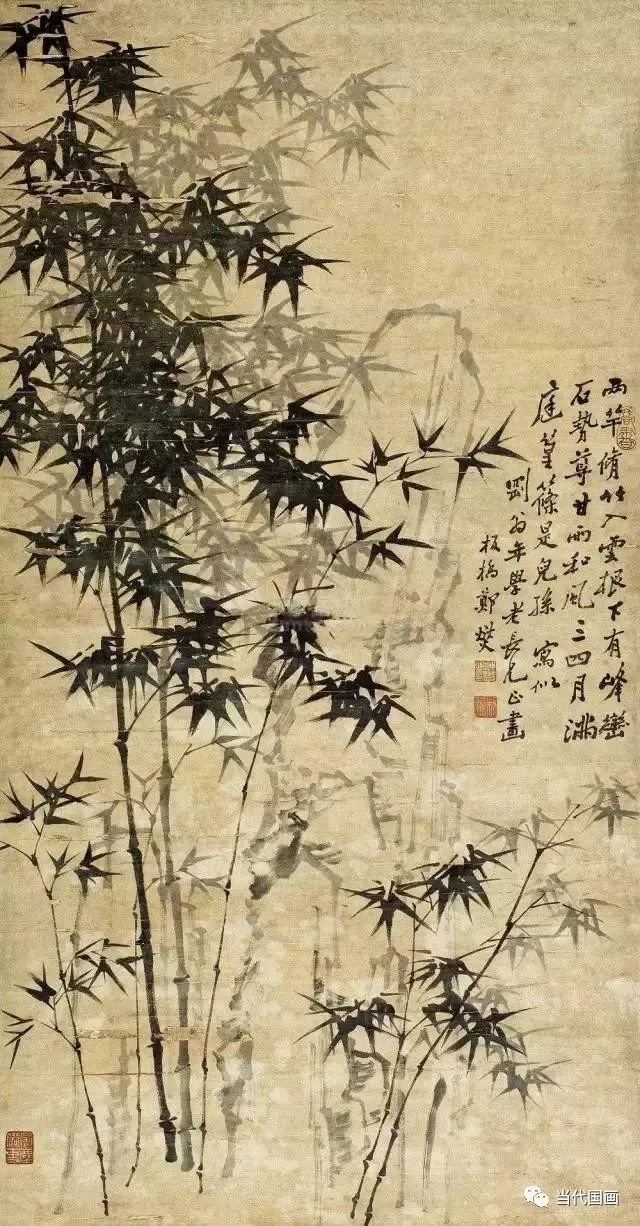 兩竿脩竹入雲根下有峰巒
石勢尊甘雨和風三四月滿
庭篁篠是兒孫 寫似
劉翁年學老長兄正畫
板橋鄭燮
当代国画